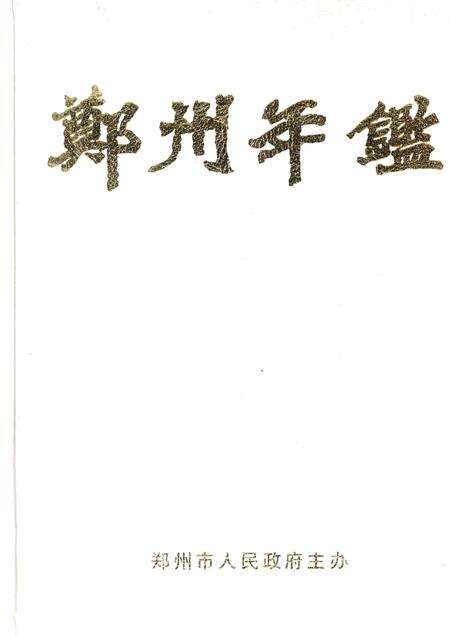 鄭州年鑑
郑州市人民政府主办